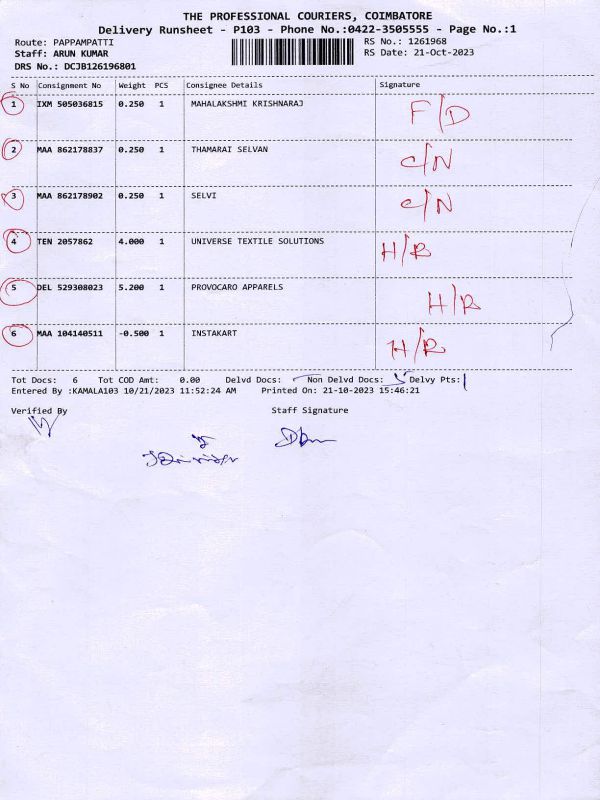 THE PROFESSIONAL COURIERS, COIMBATORE
Delivery Runsheet - P103 - Phone No.:0422-3505555 - Page No.:1
Route: PAPPAMPATTI RS No.: 1261968
Staff: ARUN KUMAR RS Date: 21-Oct-2023
DRS No.: DCJB126196801
S No Consignment No Weight PCS Consignee Details Signature
1 IXM 505036815 0.250 1 MAHALAKSHMI KRISHNARAJ F/D
2 MAA 862178837 0.250 1 THAMARAI SELVAN C/N
3 MAA 862178902 0.250 1 SELVI C/N
4 TEN 2057862 4.000 1 UNIVERSE TEXTILE SOLUTIONS H/R
5 DEL 529308023 5.200 1 PROVOCARO APPARELS H/R
6 MAA 104140511 -0.500 1 INSTAKART H/R
Tot Docs: 6 Tot COD Amt: 0.00 Delvd Docs: Non Delvd Docs: Delvy Pts:
Entered By :KAMALA103 10/21/2023 11:52:24 AM Printed On: 21-10-2023 15:46:21
Verified By Staff Signature